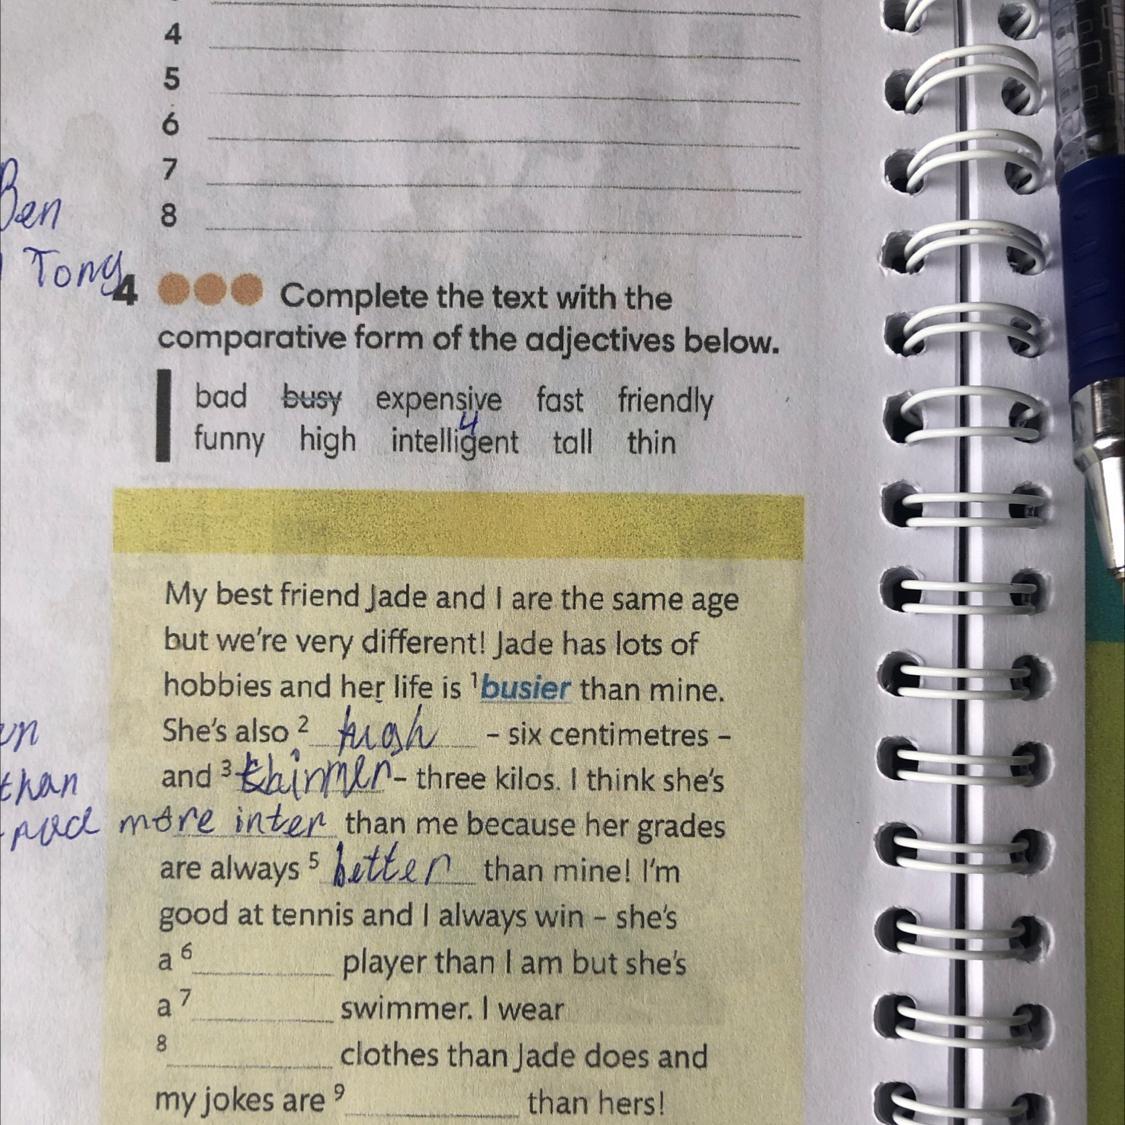 4
5
6
7
8
Ben
Tony
4 Complete the text with the
comparative form of the adjectives below.
bad busy expensive fast friendly
4
funny high intelligent tall thin
My best friend Jade and I are the same age
but we're very different! Jade has lots of
hobbies and her life is 1 busier than mine.
She's also 2 high – six centimetres –
and 3 thinner – three kilos. I think she's
than
more inter than me because her grades
are always 5 better than mine! I'm
good at tennis and I always win – she's
a 6 player than I am but she's
a 7 swimmer. I wear
8 clothes than Jade does and
my jokes are 9 than hers!